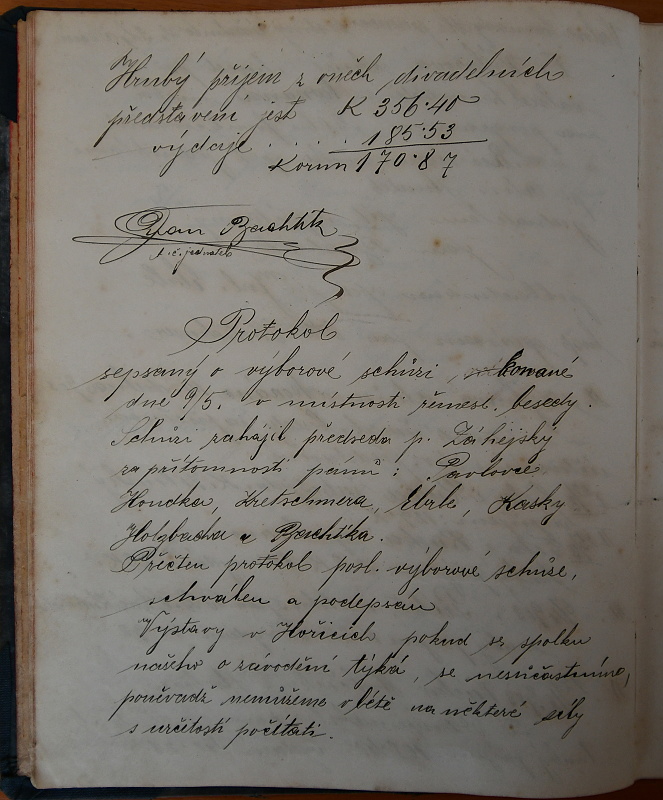 Hrubý příjem z oněch divadelních
představení jest K 356·40
výdaje . . . 185·53
Korun 170·87
Jan Bachtík
t. č. jednatel
Protokol
sepsaný o výborové schůzi, konané
dne 9/5. v místnosti řemesl. besedy.
Schůzi zahájil předseda p. Záhejský
za přítomnosti pánů: Pavlovce
Houdka, Kretschmera, Ebrle, Kásky
Holzbacha a Bachtíka.
Přečten protokol posl. výborové schůze,
schválen a podepsán
Výstavy v Hořicích pokud se spolku
našeho o závodění týká, se nesúčastníme,
poněvadž nemůžeme v létě na některé síly
s určitostí počítati.